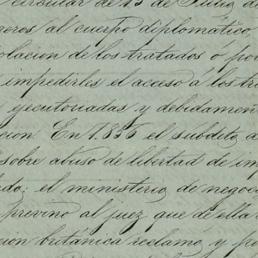 circular de 15 de Julio d
neros al cuerpo diplomático,
olacion de los tratados ó por
impedirles el acceso a los tri
ejecutoriadas y debidamen
cion En 1835 el subdito
sobre abuso de libertad de im
do: el ministerio de negoc
previno al juez que de ella
ion britanica reclamo y p